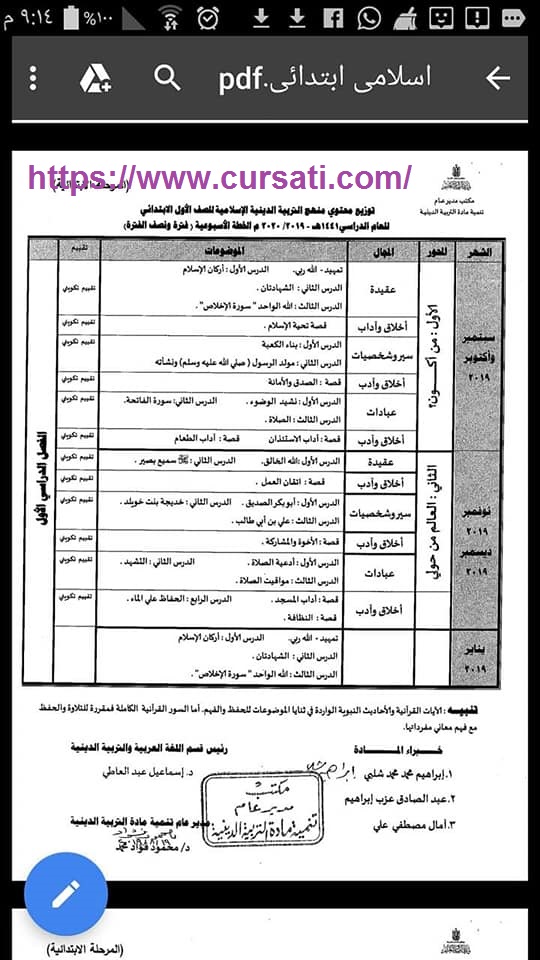 ٩:١٤ م
%١٠٠
اسلامى ابتدائى.pdf
https://www.cursati.com/
(المرحلة الابتدائية)
مكتب مدير عام
تنمية مادة التربية الدينية
توزيع محتوي منهج التربية الدينية الإسلامية للصف الأول الابتدائي
للعام الدراسي ١٤٤١هـ - ٢٠١٩/ ٢٠٢٠ م الخطة الأسبوعية ( فترة ونصف الفترة)
الشهر المحور المجال الموضوعات تقييم
سبتمبر وأكتوبر ٢٠١٩
الأول : من أكون؟
عقيدة
تمهيد - الله ربي. الدرس الأول : أركان الإسلام
الدرس الثاني : الشهادتان .
الدرس الثالث : الله الواحد " سورة الإخلاص" .
تقييم تكويني
أخلاق وآداب قصة تحية الإسلام . تقييم تكويني
سير وشخصيات
الدرس الأول : بناء الكعبة
الدرس الثاني : مولد الرسول ( صلي الله عليه وسلم) ونشأته
تقييم تكويني
أخلاق وأدب قصة : الصدق والأمانة تقييم تكويني
عبادات
الدرس الأول : نشيد الوضوء . الدرس الثاني: سورة الفاتحة.
الدرس الثالث : الصلاة .
تقييم تكويني
أخلاق وأدب قصة : آداب الاستئذان قصة : آداب الطعام تقييم تكويني
الفصل الدراسي الأول
نوفمبر ٢٠١٩ ديسمبر ٢٠١٩
الثاني : العالم من حولي
عقيدة الدرس الأول :الله الخالق. الدرس الثاني : الله سميع بصير . تقييم تكويني
أخلاق وأدب قصة : اتقان العمل . تقييم تكويني
سير وشخصيات
الدرس الأول : أبو بكر الصديق . الدرس الثاني : خديجة بنت خويلد .
الدرس الثالث : علي بن أبي طالب .
تقييم تكويني
أخلاق وأدب قصة : الأخوة والمشاركة . تقييم تكويني
عبادات
الدرس الأول : أدعية الصلاة . الدرس الثاني : النشيد .
الدرس الثالث : مواقيت الصلاة .
تقييم تكويني
أخلاق وأدب
قصة : آداب المسجد . الدرس الرابع : الحفاظ علي الماء .
قصة : النظافة .
تقييم تكويني
يناير ٢٠١٩
تمهيد - الله ربي. الدرس الأول : أركان الإسلام
الدرس الثاني : الشهادتان .
الدرس الثالث : الله الواحد " سورة الإخلاص" .
تنبيه : الآيات القرآنية والأحاديث النبوية الواردة في ثنايا الموضوعات للحفظ والفهم. أما السور القرآنية الكاملة فمقررة للتلاوة والحفظ
مع فهم معاني مفرداتها.
خبراء المادة رئيس قسم اللغة العربية والتربية الدينية
١.إبراهيم محمد محمد شلبي د. إسماعيل عبد العاطي
٢. عبد الصادق عزب إبراهيم
٣. آمال مصطفي علي
مكتب
مدير عام
تنمية مادة التربية الدينية
مدير عام تنمية مادة التربية الدينية
د/ محمود فؤاد محمد
(المرحلة الابتدائية)